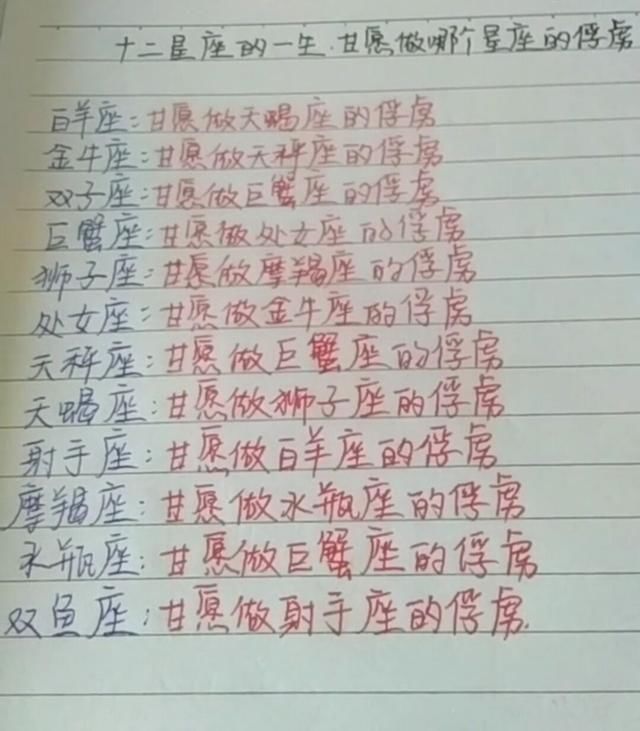 十二星座的一生.甘愿做哪个星座的俘虏
白羊座:甘愿做天蝎座的俘虏
金牛座:甘愿做天秤座的俘虏
双子座:甘愿做巨蟹座的俘虏
巨蟹座:甘愿做处女座的俘虏
狮子座:甘愿做摩羯座的俘虏
处女座:甘愿做金牛座的俘虏
天秤座:甘愿做巨蟹座的俘虏
天蝎座:甘愿做狮子座的俘虏
射手座:甘愿做白羊座的俘虏
摩羯座:甘愿做水瓶座的俘虏
水瓶座:甘愿做巨蟹座的俘虏
双鱼座:甘愿做射手座的俘虏.